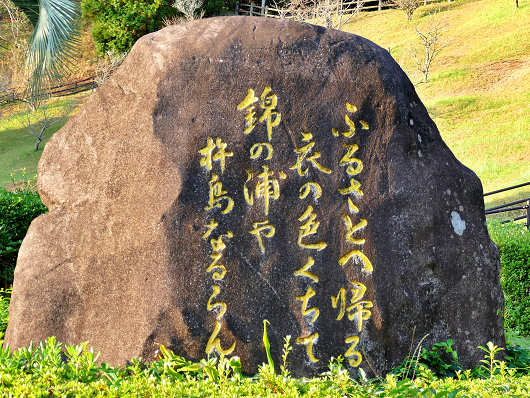 ふるさとへ帰る
衣の色くちて
錦の浦や
杵島なるらん